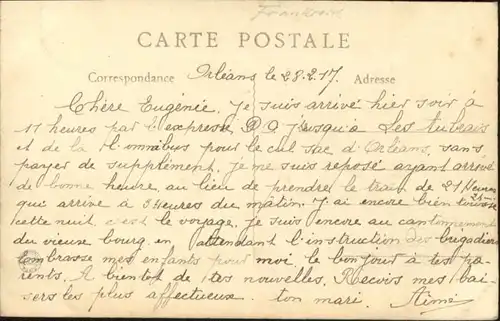 Frankreich
CARTE POSTALE
Correspondance Orléans le 28.2.17. Adresse
Chère Eugénie. Je suis arrivé hier soir à
11 heures par l'expresse, P.O. jusqu'à Les Aubrais
et de la l'omnibus pour le cul sac d'Orléans, sans
payer de supplément, je me suis reposé ayant arrivé
de bonne heure, au lieu de prendre le train de 21 heures
qui arrive à 3 heures du matin. J'ai encore bien toussé
cette nuit, c'est le voyage, je suis encore au cantonnement
du vieuse bourg, en attendant l'instruction des brigadiers
Embrasse mes enfants pour moi le bonjour à tes pa-
rents. A bientot de tes nouvelles. Reçois mes bai-
sers les plus affectueux. ton mari. Aimé